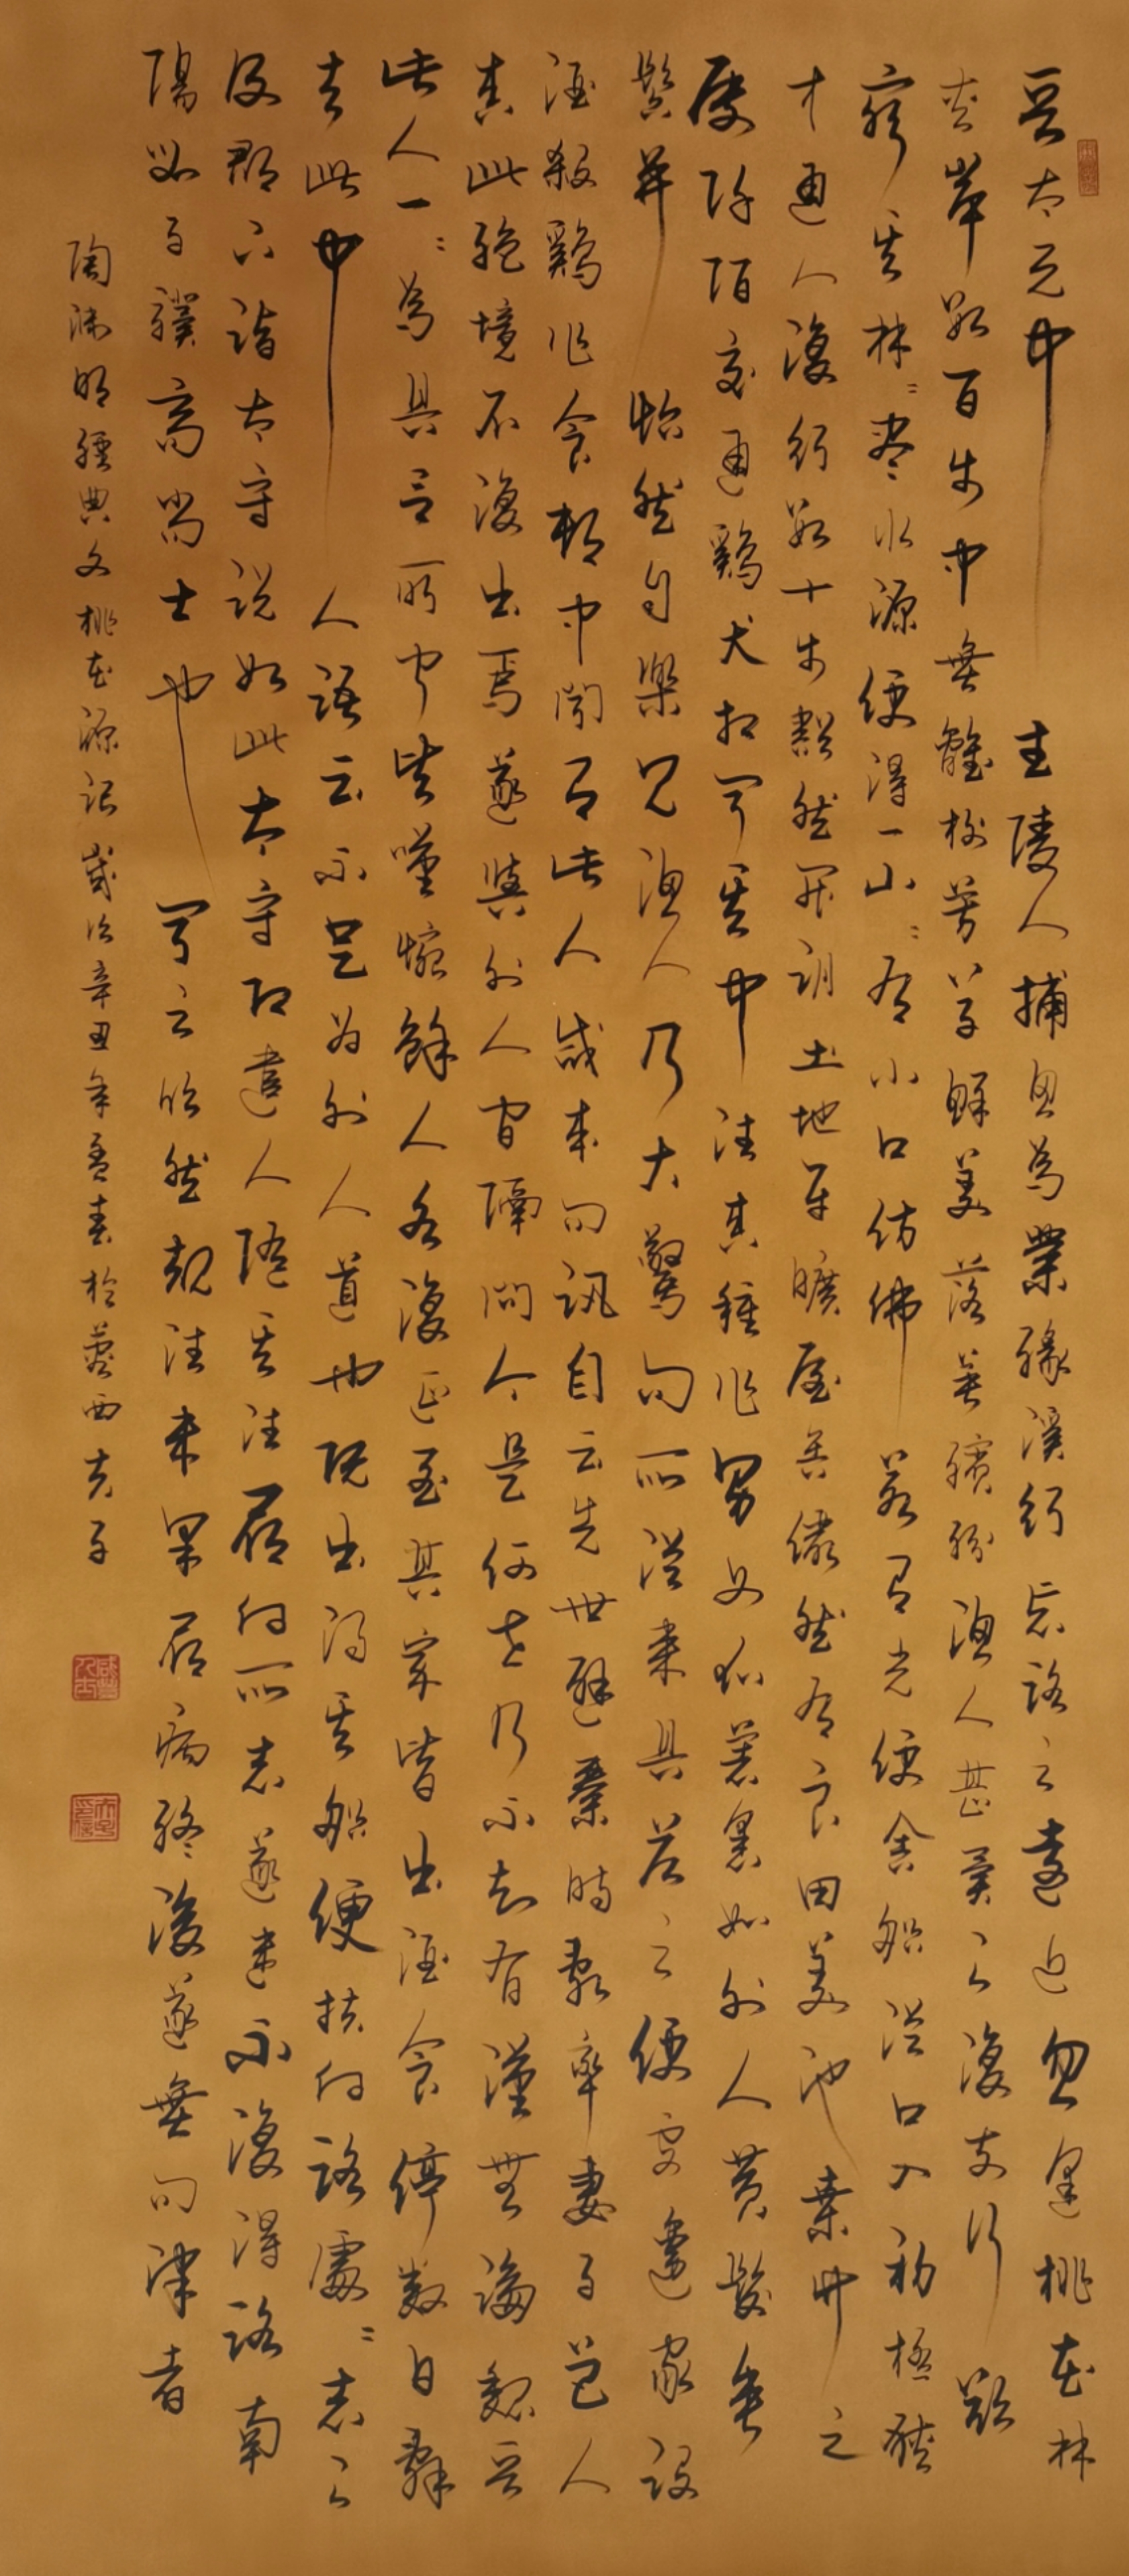 晋太元中武陵人捕魚為業緣溪行忘路之遠近忽逢桃花林
夾岸數百步中無雜樹芳草鮮美落英繽紛漁人甚異之復前行欲
窮其林〻盡水源便得一山〻有小口仿佛若有光便舍船從口入初極狹
才通人復行數十步豁然開朗土地平曠屋舍儼然有良田美池桑竹之
屬阡陌交通鷄犬相聞其中往來種作男女衣著悉如外人黄髮垂
髫並怡然自樂見漁人乃大驚問所從來具答之便要還家設
酒殺鷄作食村中聞有此人咸來問訊自云先世避秦時亂率妻子邑人
來此絶境不復出焉遂與外人間隔問今是何世乃不知有漢無論魏晋
此人一〻為具言所聞皆嘆惋餘人各復延至其家皆出酒食停數日辭
去此中人語云不足為外人道也既出得其船便扶向路處〻志之
及郡下詣太守説如此太守即遣人隨其往尋向所志遂迷不復得路南
陽劉子驥高尚士也聞之欣然規往未果尋病終後遂無問津者
陶淵明經典文桃花源記歲次辛丑年孟春於